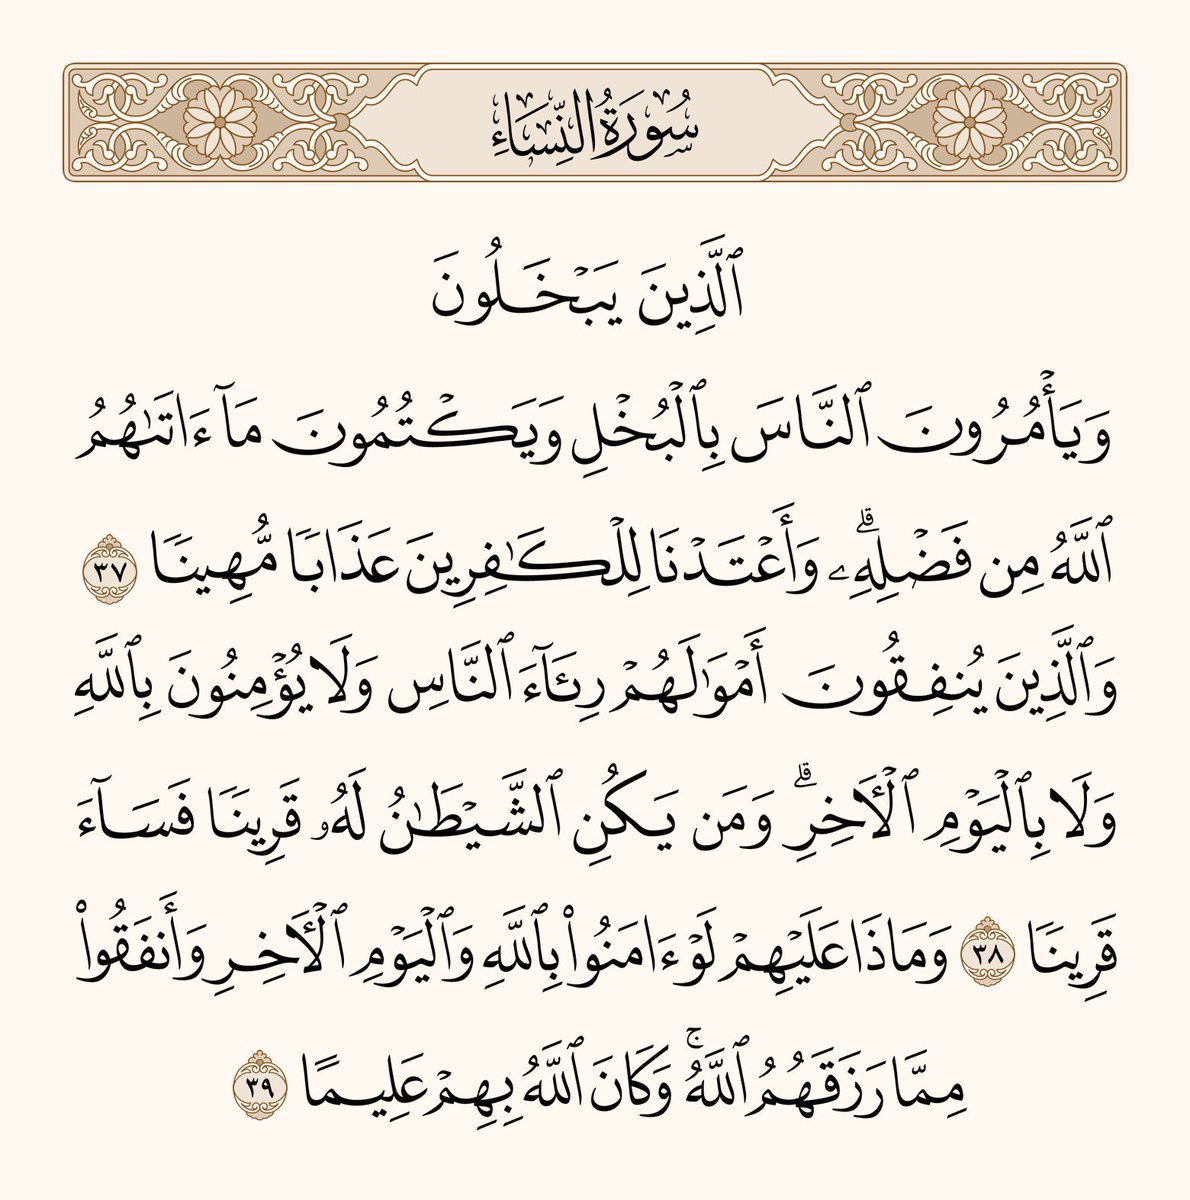 سُورَةُ النِّسَاءِ
ٱلَّذِينَ يَبۡخَلُونَ
وَيَأۡمُرُونَ ٱلنَّاسَ بِٱلۡبُخۡلِ وَيَكۡتُمُونَ مَآ ءَاتَىٰهُمُ
ٱللَّهُ مِن فَضۡلِهِۦۗ وَأَعۡتَدۡنَا لِلۡكَٰفِرِينَ عَذَابٗا مُّهِينٗا ٣٧
وَٱلَّذِينَ يُنفِقُونَ أَمۡوَٰلَهُمۡ رِئَآءَ ٱلنَّاسِ وَلَا يُؤۡمِنُونَ بِٱللَّهِ
وَلَا بِٱلۡيَوۡمِ ٱلۡأٓخِرِۗ وَمَن يَكُنِ ٱلشَّيۡطَٰنُ لَهُۥ قَرِينٗا فَسَآءَ
قَرِينٗا ٣٨ وَمَاذَا عَلَيۡهِمۡ لَوۡ ءَامَنُواْ بِٱللَّهِ وَٱلۡيَوۡمِ ٱلۡأٓخِرِ وَأَنفَقُواْ
مِمَّا رَزَقَهُمُ ٱللَّهُۚ وَكَانَ ٱللَّهُ بِهِمۡ عَلِيمًا ٣٩